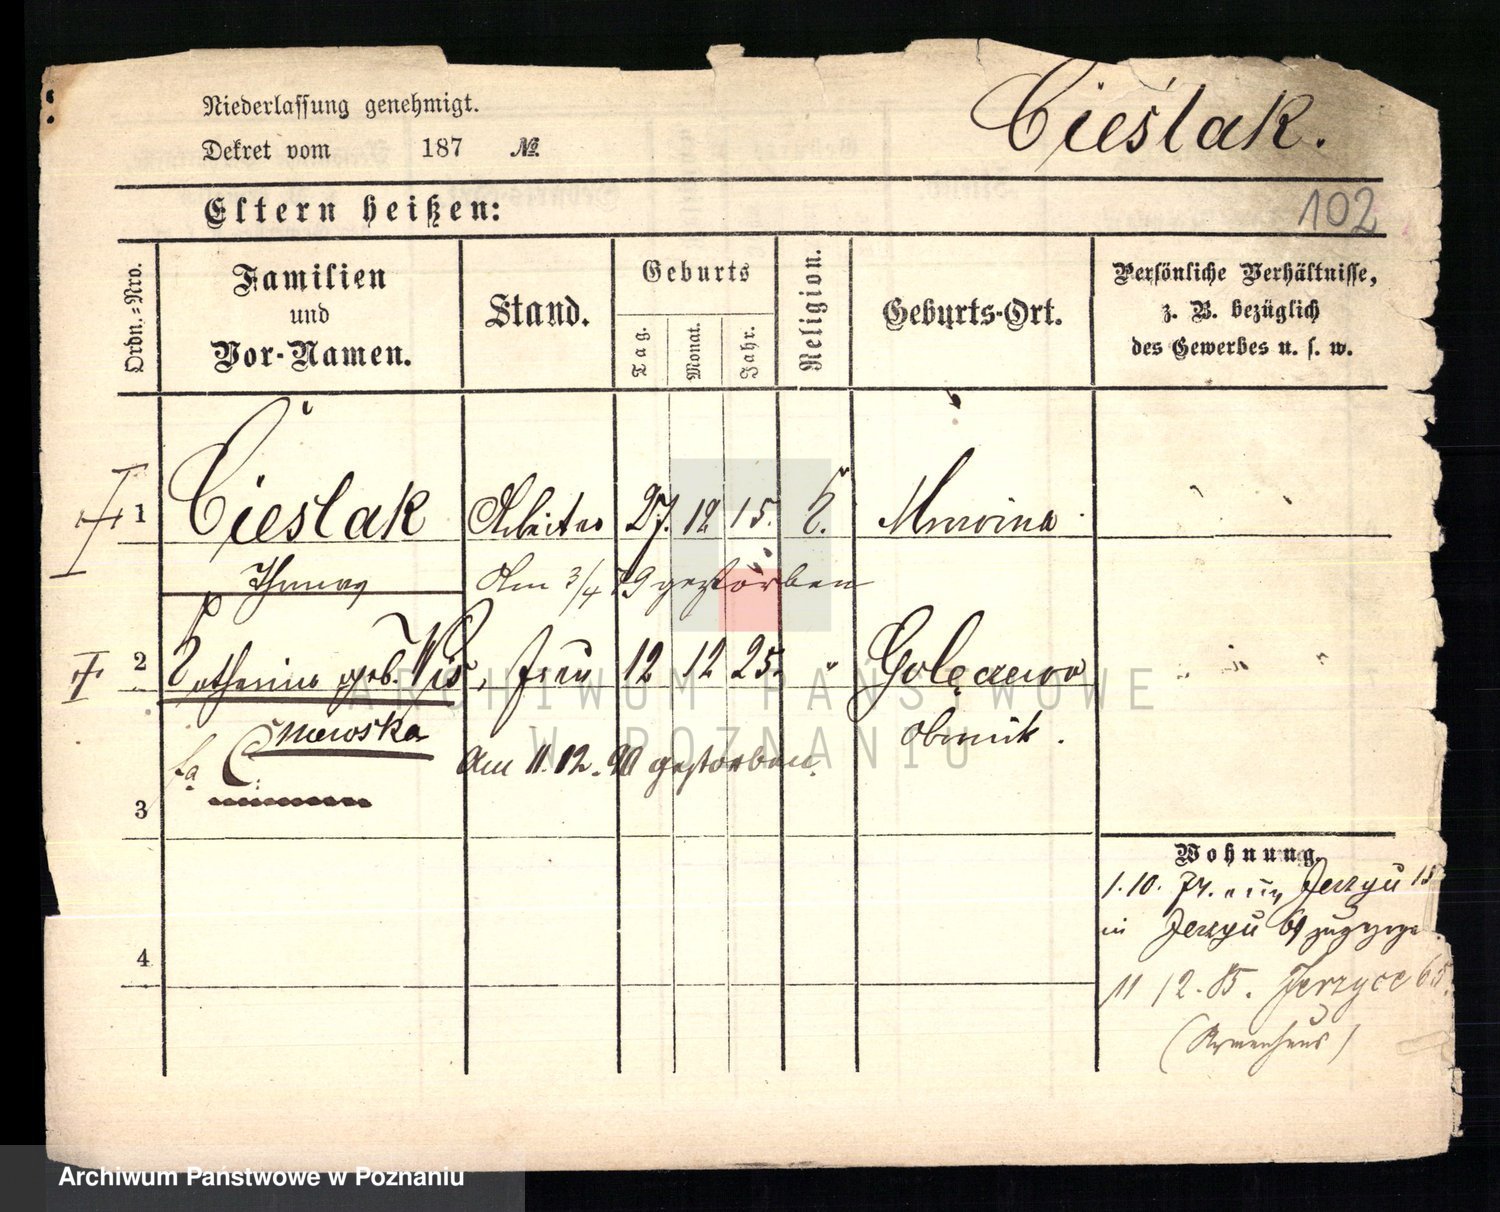 Niederlassung genehmigt.
Cieślak.
Dekret vom 187 №
Eltern heißen:
102
Ordn.=Nro.
Familien
und
Vor-Namen.
Stand.
Geburts
Tag. Monat. Jahr.
Religion.
Geburts-Ort.
Persönliche Verhältnisse,
z. B. bezüglich
des Gewerbes u. s. w.
1 Cieslak Arbeiter 27. 12 15. K. Mrowino
Thomas Am 3/4 79 gestorben
2 Katharina geb. Frau 12 12 25. " Golęczewo
Obornik.
Am 11. 12. 90 gestorben.
3
Wohnung.
1. 10. 74. Jerzyce 15
in Jerzyce
4
11 12. 85. Jerzyce 65.
(Armenhaus)
ARCHIWUM PAŃSTWOWE
W POZNANIU
Archiwum Państwowe w Poznaniu